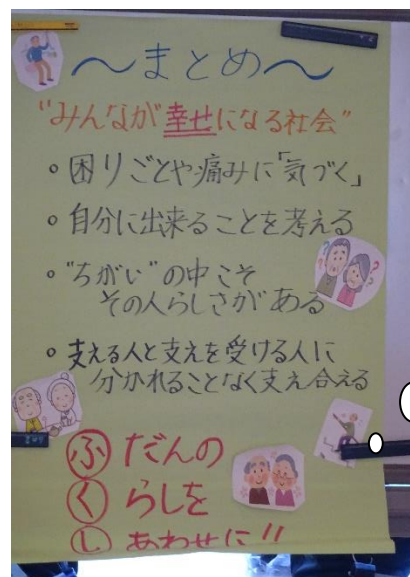 ～まとめ～
"みんなが幸せになる社会"
◦困りごとや痛みに「気づく」
◦自分に出来ることを考える
◦"ちがい"の中こそ
その人らしさがある
◦支える人と支えを受ける人に
分かれることなく支え合える
ふだんの
くらしを
しあわせに!!